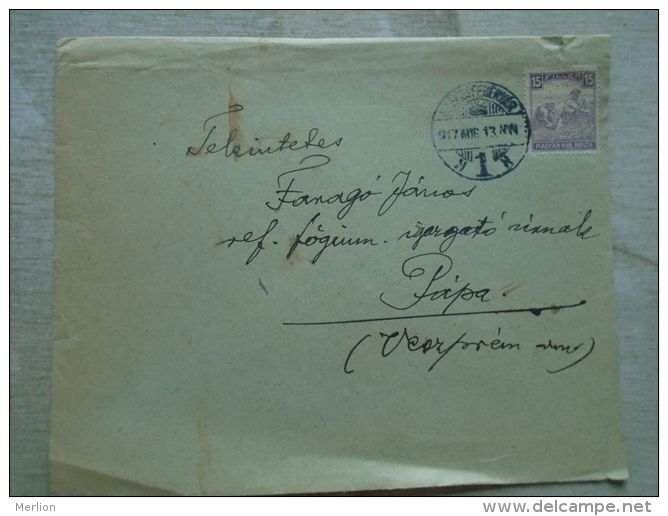 15 FILLÉR 15
MAGYAR KIR. POSTA
917 AUG 13
1
Tekintetes
Faragó János
ref. főgium. igazgató úrnak
Pápa.
(Veszprém vm)
Merlion
delcampe.net